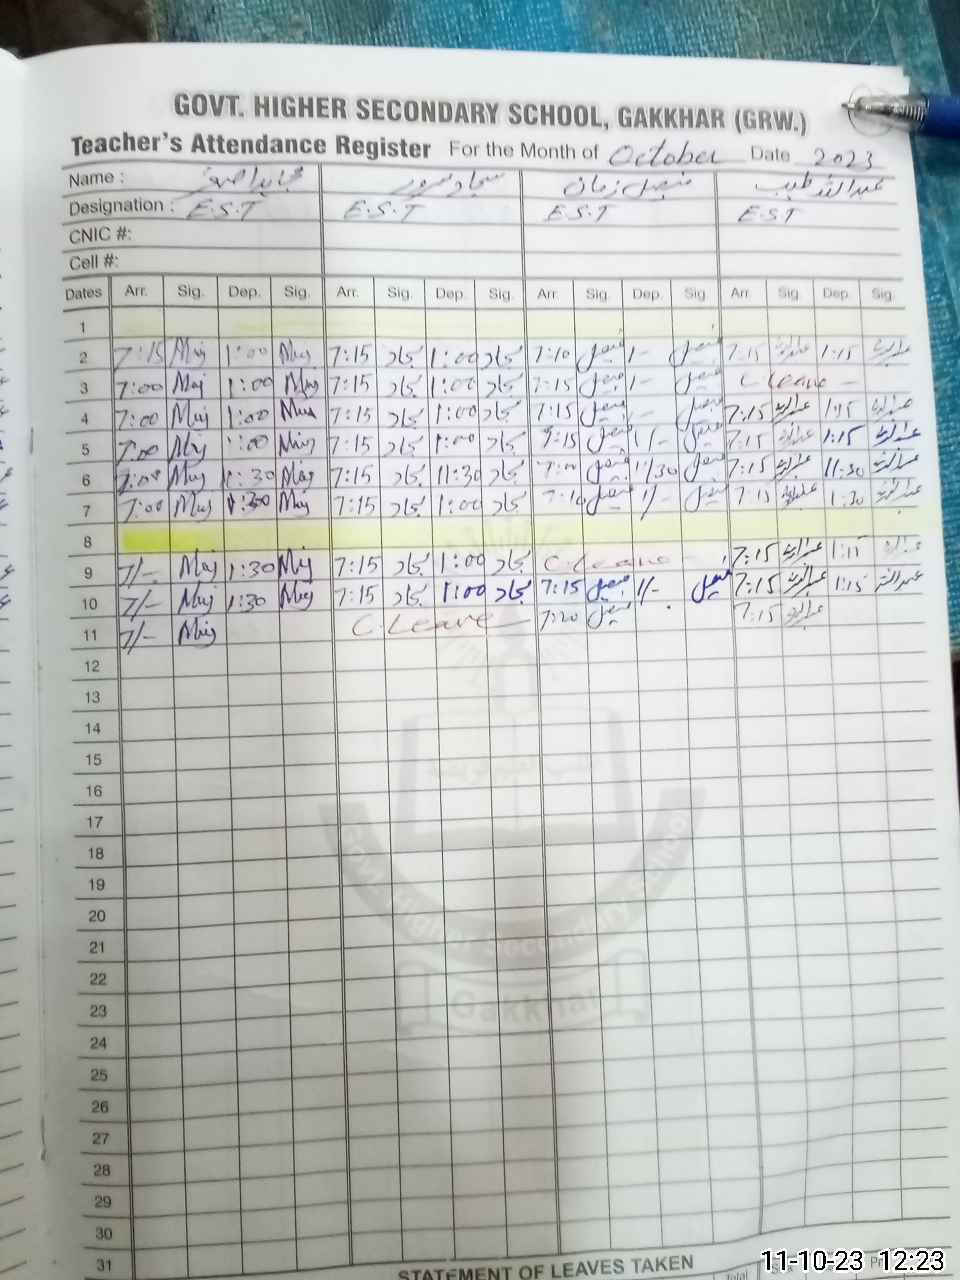 GOVT. HIGHER SECONDARY SCHOOL, GAKKHAR (GRW.)
Teacher's Attendance Register For the Month of October Date 2023
Name : سجاد سرور فیصل زمان عبداللہ طیب
Designation : E.S.T E.S.T E.S.T E.S.T
CNIC #:
Cell #:
Dates Arr. Sig. Dep. Sig. Arr. Sig. Dep. Sig. Arr. Sig. Dep. Sig. Arr. Sig. Dep. Sig.
1
2 7:15 Muj 1:00 Muj 7:15 سجاد 1:00 سجاد 7:10 فیصل 1/- فیصل 7:15 عبداللہ 1:15 عبداللہ
3 7:00 Muj 1:00 Muj 7:15 سجاد 1:00 سجاد 7:15 فیصل 1/- فیصل C Leave
4 7:00 Muj 1:00 Muj 7:15 سجاد 1:00 سجاد 7:15 فیصل 1/- فیصل 7:15 عبداللہ 1:15 عبداللہ
5 7:00 Muj 1:00 Muj 7:15 سجاد 1:00 سجاد 7:15 فیصل 1/- فیصل 7:15 عبداللہ 1:15 عبداللہ
6 7:00 Muj 11:30 Muj 7:15 سجاد 11:30 سجاد 7:00 فیصل 11/30 فیصل 7:15 عبداللہ 11:30 عبداللہ
7 7:00 Muj 1:30 Muj 7:15 سجاد 1:00 سجاد 7:10 فیصل 1/- فیصل 7:15 عبداللہ 1:20 عبداللہ
8
9 7/- Muj 1:30 Muj 7:15 سجاد 1:00 سجاد C.Leave 7:15 عبداللہ 1:15 عبداللہ
10 7/- Muj 1:30 Muj 7:15 سجاد 1:00 سجاد 7:15 فیصل 1/- فیصل 7:15 عبداللہ 1:15 عبداللہ
11 7/- Muj C.Leave 7:20 فیصل 7:15 عبداللہ
12
13
14
15
16
17
18
19
20
21
22
23
24
25
26
27
28
29
30
31
Govt. Higher Secondary School
Gakkhar
STATEMENT OF LEAVES TAKEN
Total
11-10-23 12:23